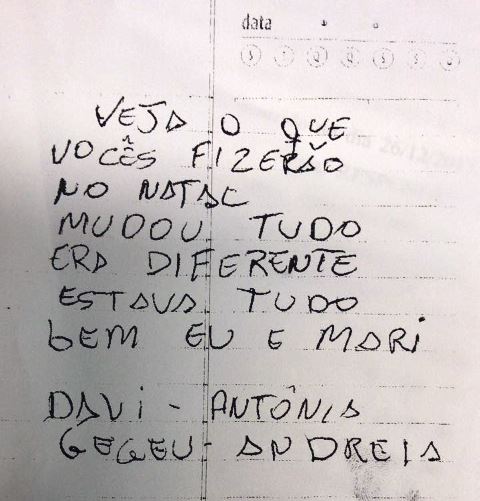 data
S T Q Q S S D
VEJA O QUE
VOCÊS FIZERÃO
NO NATAL
MUDOU TUDO
ERA DIFERENTE
ESTAVA TUDO
bEM EU E MARi
DAVi - ANTÔNIA
GEGEU - ANDREIA